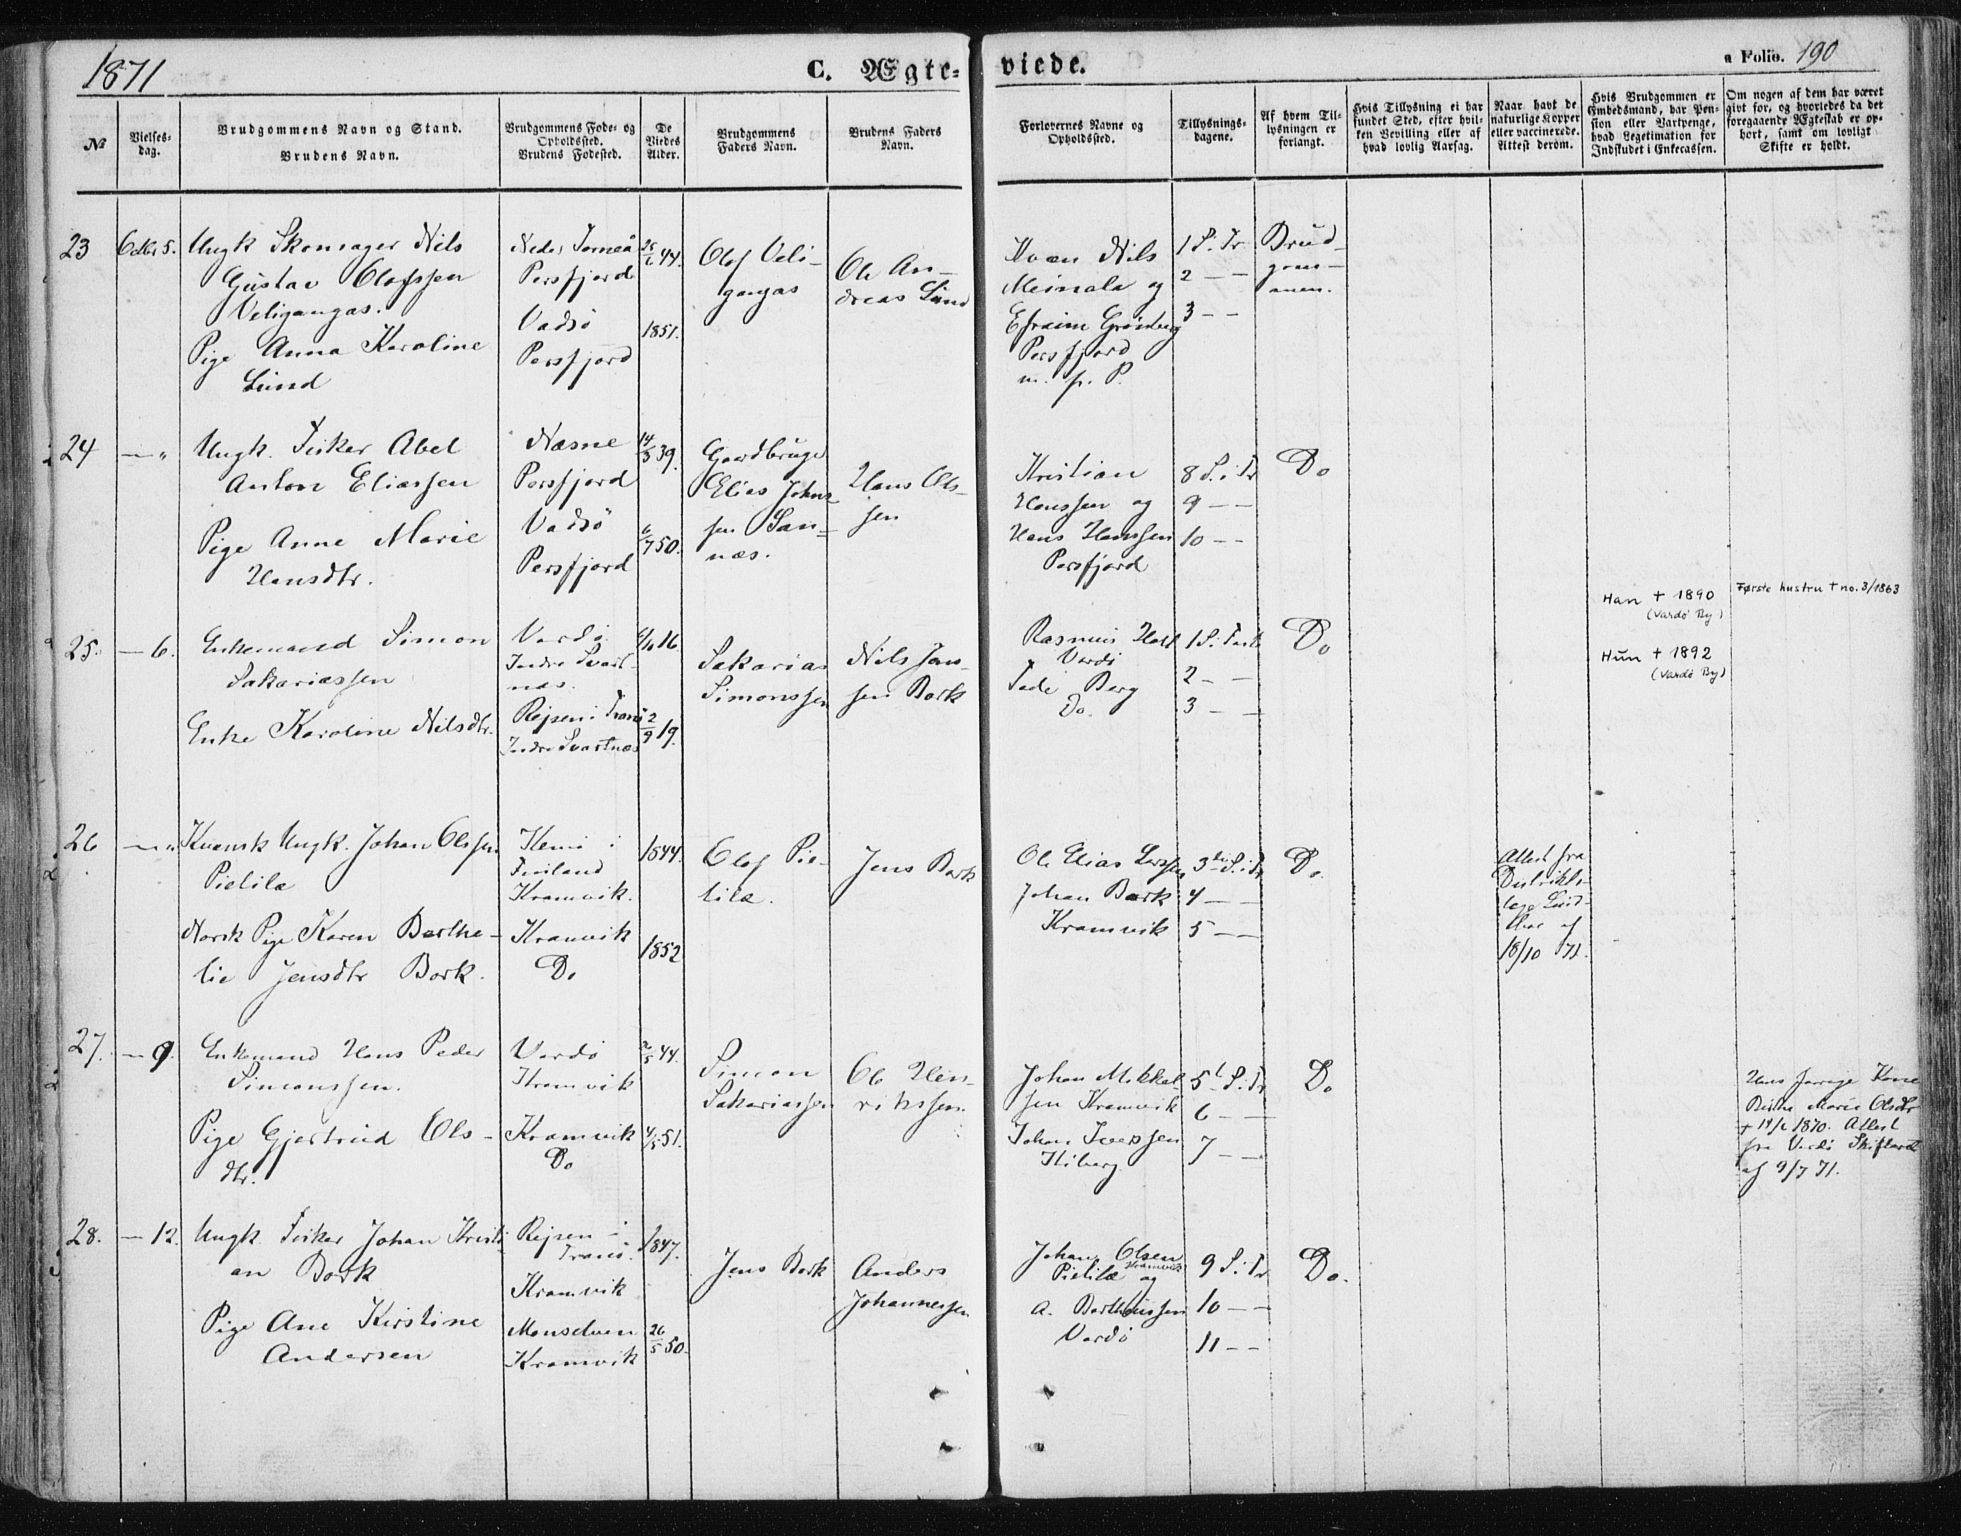 1871
C. Ægte-
viede.
a Folio. 190
No
Vielses-
dag.
Brudgommens Navn og Stand.
Brudens Navn.
Brudgommens Føde- og
Opholdssted.
Brudens Fødested.
De
Viedes
Alder.
Brudgommens
Faders Navn.
Brudens Faders
Navn.
Forlovernes Navne og
Opholdssted.
Tillysnings-
dagene.
Af hvem Til-
lysningen er
forlangt.
Hvis Tillysning ei har
fundet Sted, efter hvil-
ken Bevilling eller af
hvad lovlig Aarsag.
Naar havt de
naturlige Kopper
eller vaccinerede.
Attest derom.
Hvis Brudgommen er
Embedsmand, har Pen-
sion eller Vartpenge,
hvad Legetimation for
Indskudet i Enkecassen.
Om nogen af dem har været
givt for, og hvorledes da det
foregaaende Ægteskab er op-
hørt, samt om lovligt
Skifte er holdt.
23
Octbr 5.
Ungk Skomager Nils
Gustav Olofssen
Veligangas.
Pige Anna Karoline
Lund
Neder Torneå
Persfjord
Vadsø
Persfjord
25/6 44.
1851.
Olof Veli-
gangas
Ole An-
dreas Lund
Kvæn Nils
Meinala og
Efraim Grönberg
Persfjord
m. p. P.
1 S. Tr
2 — —
3 — —
Brud-
gom-
men.
24
— "
Ungk. Fisker Abel
Anton Eliassen
Pige Anne Marie
Hansdtr.
Næsne
Persfjord
Vadsø
Persfjord
14/5 39.
6/7 50.
Gaardbruger
Elias Johns-
sen San-
næs.
Hans Ols-
sen
Kristian
Hanssen og
Hans Hanssen
Persfjord
8 S. i Tr
9 — —
10 — —
Do
25.
— 6.
Enkemand Simon
Sakariassen
Enke Karoline Nilsdtr.
Vardø
Indre Svart-
næs.
Rejsen i Tranø
Indre Svartnæs
16
2/9 19.
Sakarias
Simonssen
Nils Jan-
sen Bork
Rasmus Holt
Vardø
Berg
Do.
1 S. i Fast
2 — —
3 — —
Do
Han + 1890
(Vardø By)
Hun + 1892
(Vardø By)
Første hustru + no. 3/1863
26
— "
Kvænsk Ungk. Johan Olssen
Pietilæ
Norsk Pige Karen Berthe-
lie Jensdtr Bork.
Kemi i
Finland
Kramvik.
Kramvik
Do
1844.
1852
Olof Pie-
tilæ.
Jens Bork
Ole Elias Larssen
Johan Bork
Kramvik
3die S. i Tr
4 — —
5 — —
Do
Attest fra
Distrikts-
læge
af
18/10 71.
27.
— 9.
Enkemand Hans Peder
Simonssen.
Pige Gjertrud Ols-
dtr.
Vardø
Kramvik
Kramvik
Do
2/5 44.
4/5 51.
Simon
Sakariassen
Ole Hen-
rikssen.
Johan Mikkel-
sen Kramvik
Johan Iverssen
Kiberg
5t S. i Tr
6 — —
7 — —
Do
Hans forrige Kone
Birthe Marie Olsdtr
+ 14/2 1870. Attest
fra Vardø Skifteret
af 9/7 71.
28.
— 12.
Ungk Fisker Johan Kristi-
an Bork
Pige Ane Kirstine
Andersen
Rejsen i
Tranø.
Kramvik
Monselven
Kramvik
1847.
26/5 50.
Jens Bork
Anders
Johannessen
Johan Olsen
Pietilæ Kramvik og
A. Berthinssen
Vardø
9 S. i Tr
10 — —
11 — —
Do.